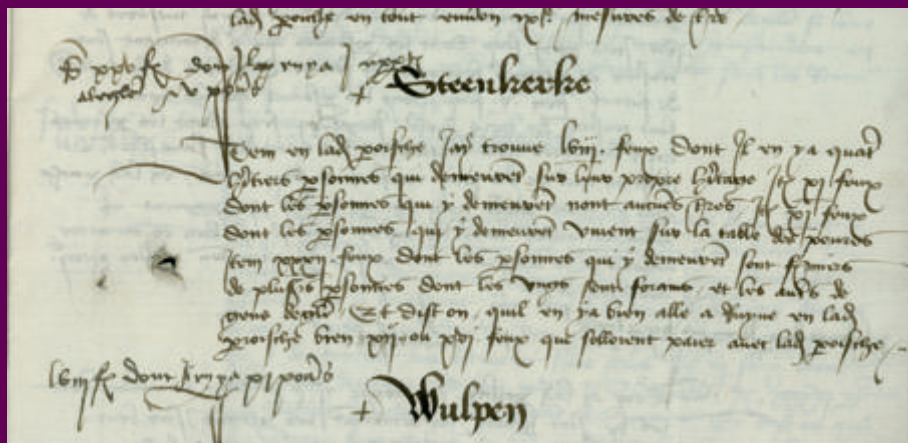 lad porche en tout environ ixc mesures de tre
xxv fx dont il en y a
Steenkerke
Item en lad porsche Jay trouve lviij feux dont Il en ya quatre
hritiers psonnes qui demeurent sur leur propre hritaige Jt xj feux
dont les psonnes qui y demeurent nont aucunes tres Jt xj feux
dont les psonnes qui y demeurent vivent sur la table des povres
Item xxxij feux dont les psonnes qui y demeurent sont fermiers
de plusrs psonnes dont les ungs sont forains et les autres de
gens deglise Et dist on quil en ya bien alle a Ruyne en lad
proische bien xij ou xvj feux que solloient paier avec lad porsche
lviij fx dont Il en ya xj povres
+ Wulpen